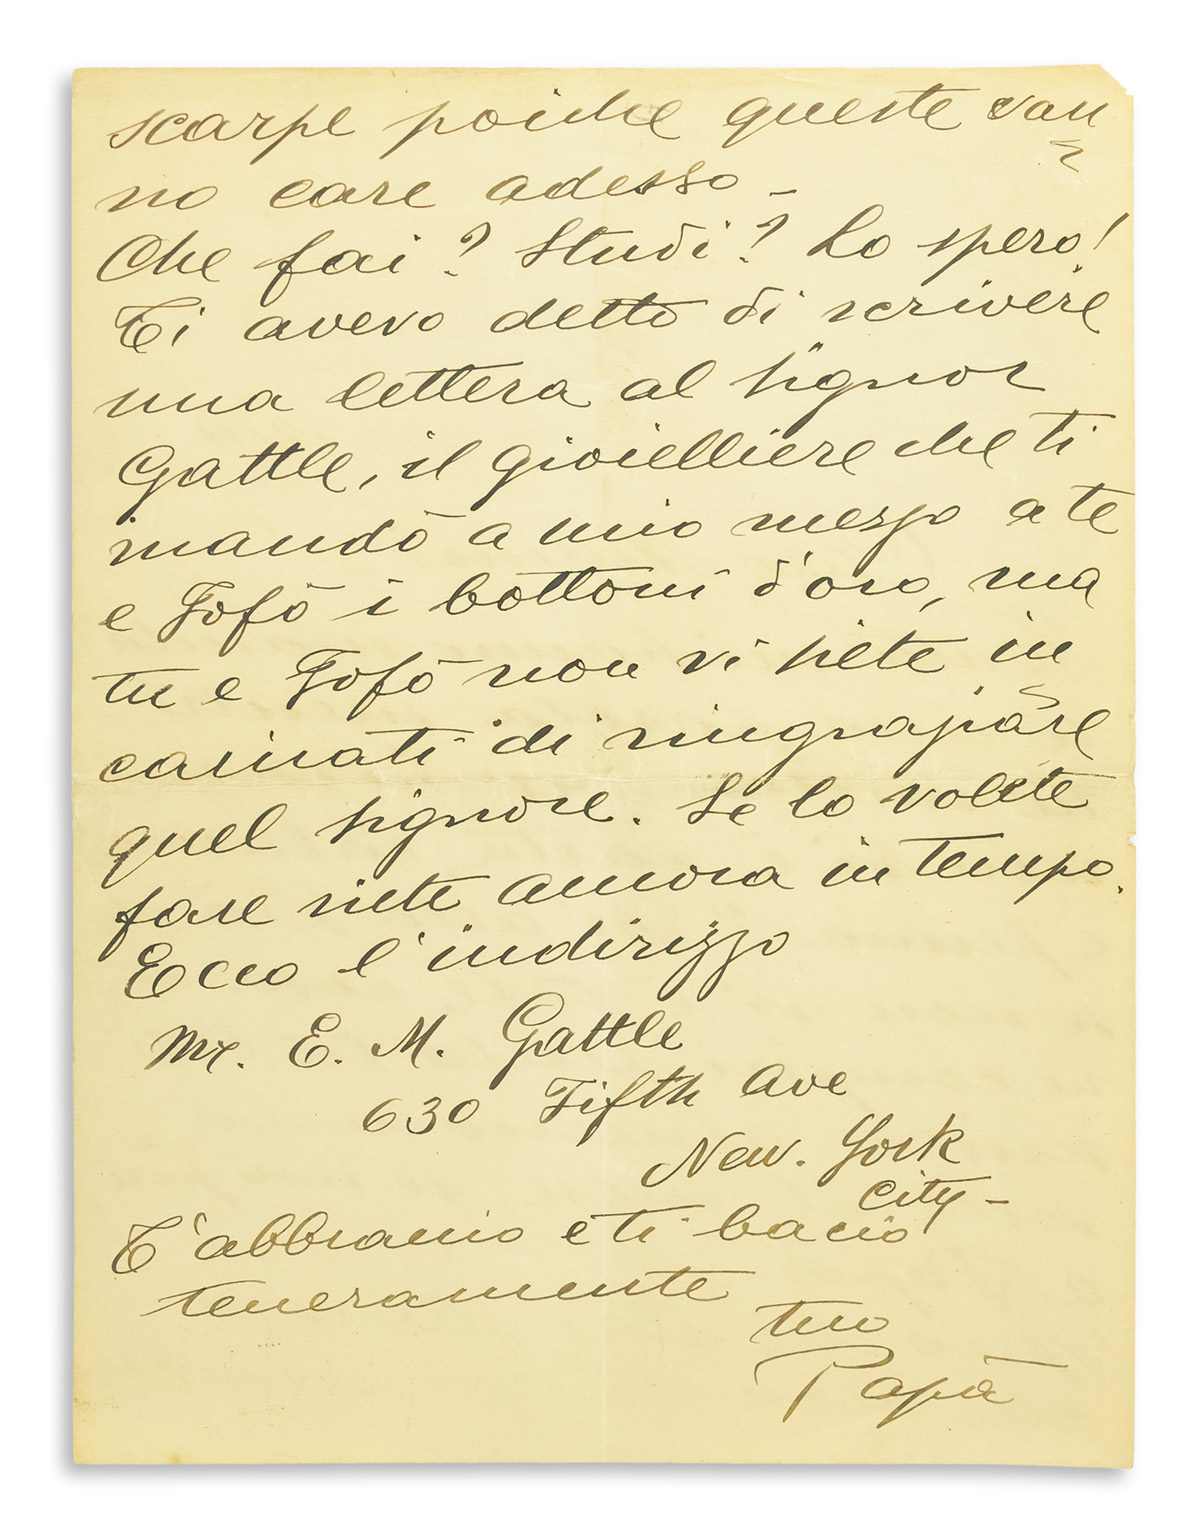 scarpe poiche queste van
no care adesso -
Che fai? Studi? Lo spero!
Ti avevo detto di scrivere
una lettera al signor
Gattle, il gioielliere che ti
mandò a mio mezzo a te
e Fofò i bottoni d'oro, ma
tu e Fofò non vi siete in
caricati di ringraziare
quel signore. Se lo volete
fare siete ancora in tempo.
Ecco l'indirizzo
Mr. E. M. Gattle
630 Fifth Ave
New. York
City -
T'abbraccio e ti bacio
teneramente
tuo
Papà